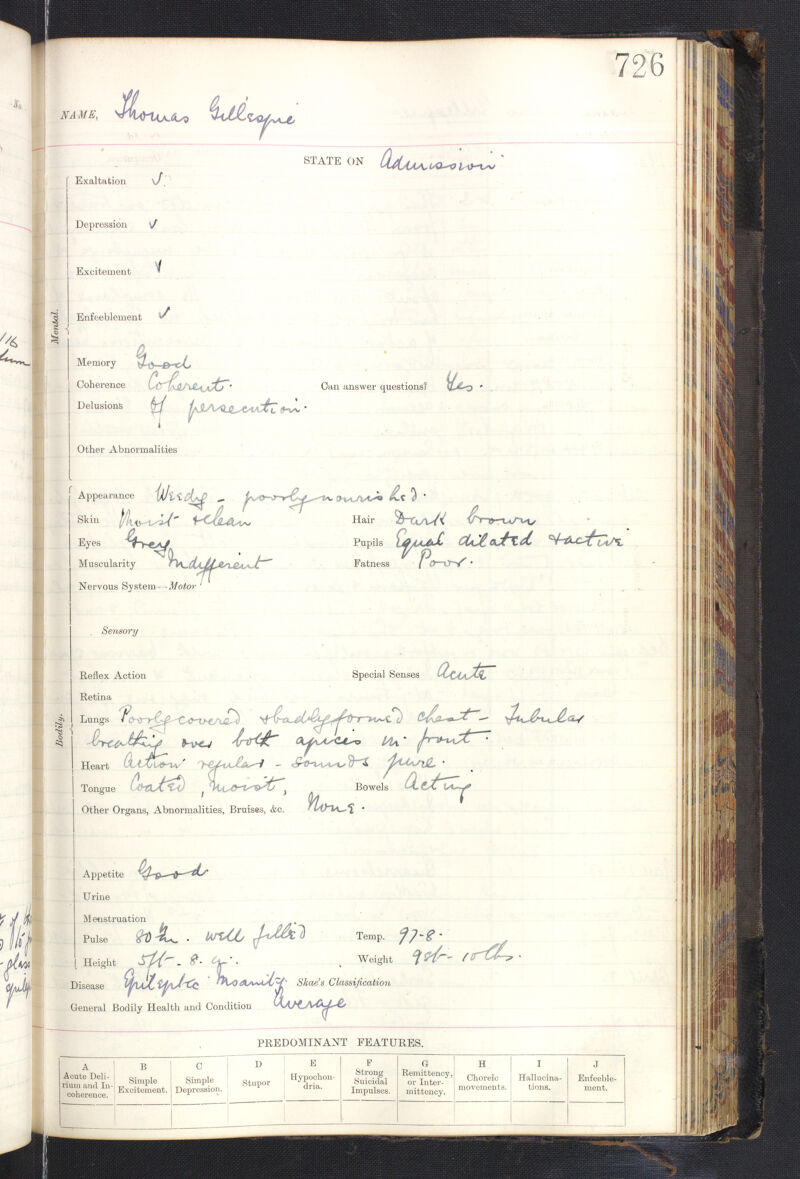 726
NAME, Thomas Gillespie
STATE ON Admission
Mental.
Exaltation √
Depression √
Excitement √
Enfeeblement √
Memory Good
Coherence Coherent. Can answer questions? Yes.
Delusions Of persecution.
Other Abnormalities
Bodily.
Appearance Weedy - poorly nourished.
Skin Moist & clean Hair Dark brown
Eyes Grey Pupils Equal dilated & active
Muscularity Indifferent Fatness Poor.
Nervous System—Motor
Sensory
Reflex Action Special Senses Acute
Retina
Lungs Poorly covered & badly formed chest - Tubular
breathing over both apices in front.
Heart Action regular - sounds pure.
Tongue Coated, moist, Bowels Acting
Other Organs, Abnormalities, Bruises, &c. None.
Appetite Good
Urine
Menstruation
Pulse 80 . well filled Temp. 97-8.
Height 5ft - 8. Weight 9st - 10lbs.
Disease Epileptic Insanity. Skae's Classification
General Bodily Health and Condition Average
PREDOMINANT FEATURES.
A Acute Deli-
rium and In-
coherence.
B Simple
Excitement.
C Simple
Depression.
D Stupor
E Hypochon-
dria.
F Strong
Suicidal
Impulses.
G Remittency,
or Inter-
mittency.
H Choreic
movements.
I Hallucina-
tions.
J Enfeeble-
ment.